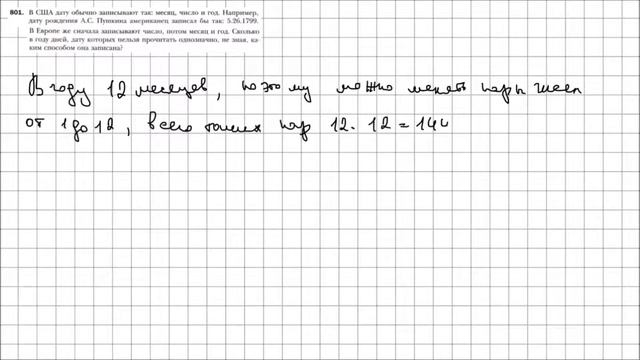 801. В США дату обычно записывают так: месяц, число и год. Например,
дату рождения А.С. Пушкина американец записал бы так: 5.26.1799.
В Европе же сначала записывают число, потом месяц и год. Сколько
в году дней, дату которых нельзя прочитать однозначно, не зная, ка-
ким способом она записана?
В году 12 месяцев, поэтому можно менять пары чисел
от 1 до 12, всего таких пар 12 · 12 = 144